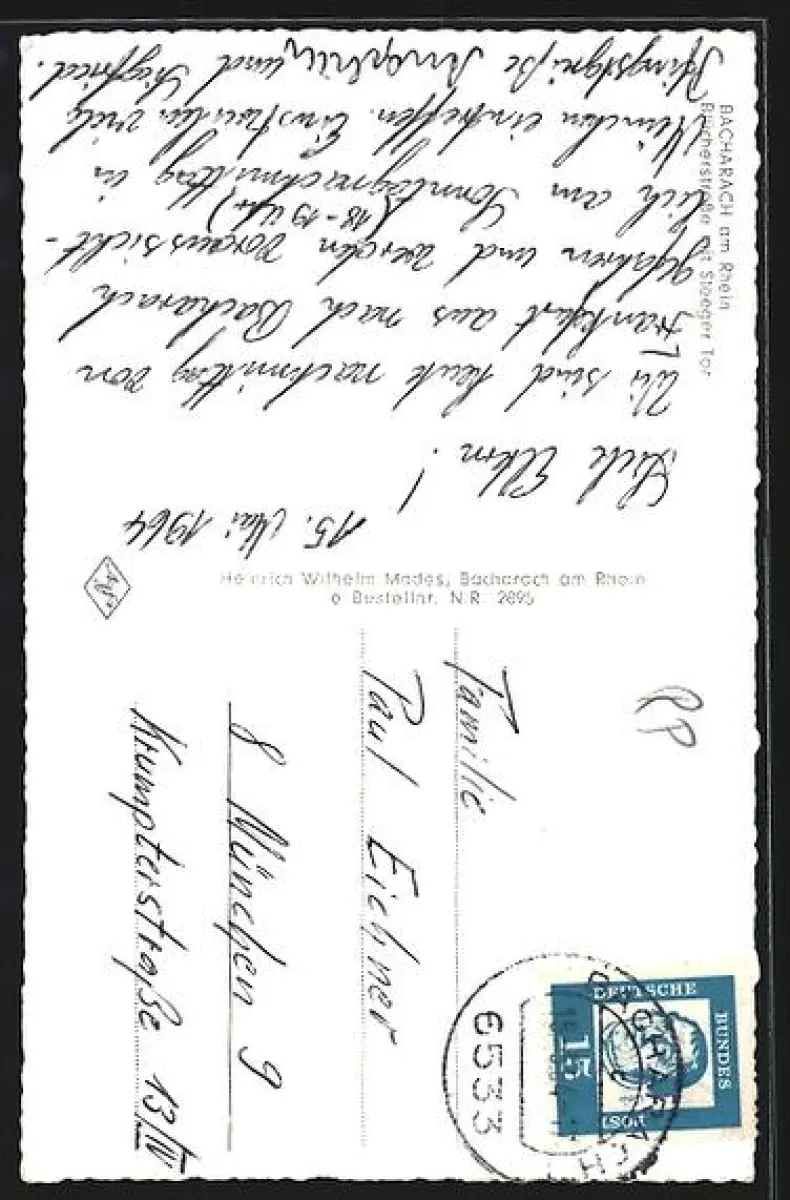 15. Mai 1964
Liebe Eltern!
Wir sind heute nachmittag von
Frankfurt aus nach Bacharach
gefahren und werden voraussicht-
lich am Sonntagnachmittag in
(18-19 Uhr)
München eintreffen. Einstweilen viele
Pfingstgrüße und Siegfried.
BACHARACH am Rhein
Blücherstraße mit Steeger Tor
Heinrich Wilhelm Mades, Bacharach am Rhein
Bestellnr. N.R. 2895
RP
Familie
Paul Eichner
8 München 9
Krumpterstraße 13/IV
DEUTSCHE
BUNDES
POST
15
BACHARACH
6533